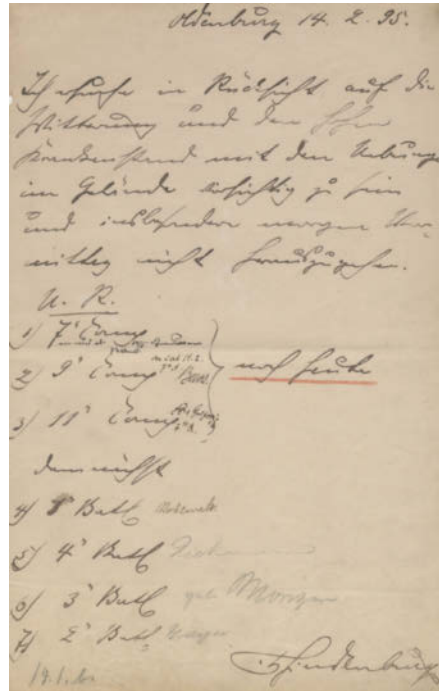 Oldenburg 14. 2. 95.
Ich ersuche in Rücksicht auf die
Witterung und den hohen
Krankenstand mit den Uebungen
im Gelände vorsichtig zu sein
und insbesondere morgen Vor-
mittag nicht herauszugehen.
U. R.
1) 7' Comp
2) 9' Comp
3) 11' Comp
noch heute
demnächst
4) Batl
5) 4' Batl
6) 3' Batl
7) 2' Batl
vHindenburg